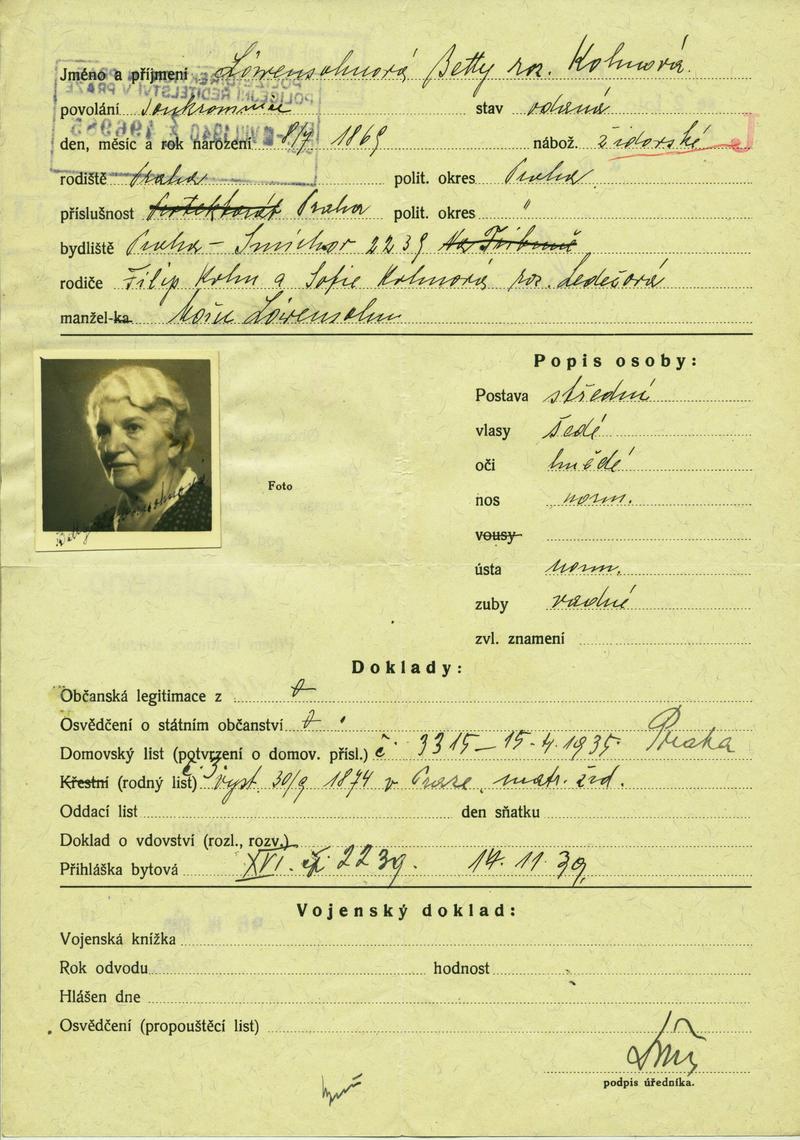 Jméno a příjmení Löwensohnová Betty roz. Kohnová.
povolání soukromnice stav vdaná
den, měsíc a rok narození 8/7 1869 nábož. židovské J
rodiště Praha polit. okres Praha
příslušnost Protektorát Praha polit. okres "
bydliště Praha - Smíchov 2239 Na Hřbitově
rodiče Filip Kohn a Sofie Kohnová roz. Ledečová
manžel-ka Löwensohn
Popis osoby:
Postava střední
vlasy šedé
oči hnědé
Foto
nos norm.
vousy
ústa norm.
zuby vadné
zvl. znamení
Doklady:
Občanská legitimace z
Osvědčení o státním občanství
Domovský list (potvrzení o domov. přísl.) č. 3315 - 15.4.1935 Praha
Křestní (rodný list) vyst. 30/9 1874 v Praze, matr. žid.
Oddací list den sňatku
Doklad o vdovství (rozl., rozv.)
Přihláška bytová XVI. čp. 2239. 14.11.39.
Vojenský doklad:
Vojenská knížka
Rok odvodu hodnost
Hlášen dne
Osvědčení (propouštěcí list)
podpis úředníka.